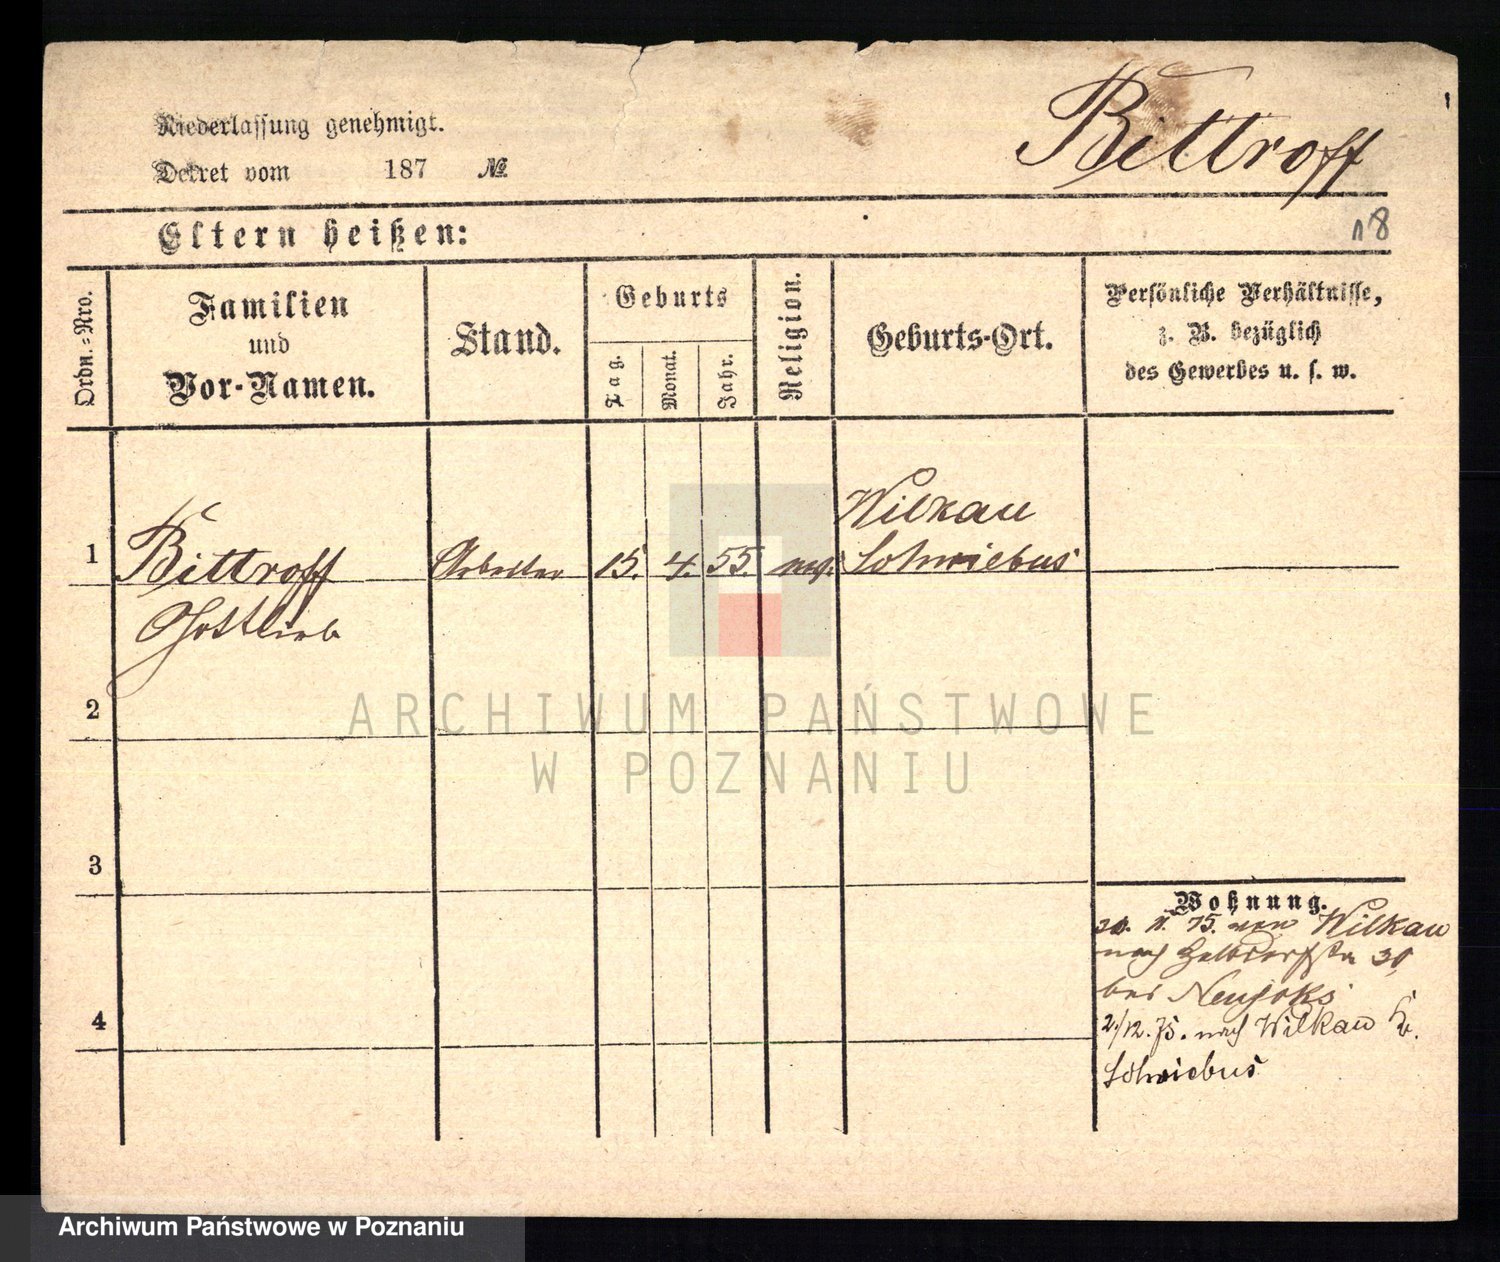 Niederlassung genehmigt.
Dekret vom 187 №
Bittroff
18
Eltern heißen:
Ordn.-Nro.
Familien
und
Vor-Namen.
Stand.
Geburts
Tag.
Monat.
Jahr.
Religion.
Geburts-Ort.
Persönliche Verhältnisse,
z. B. bezüglich
des Gewerbes u. s. w.
1
Bittroff
Gottlieb
Arbeiter
15.
4.
55.
Wilkau
Schwiebus
2
3
4
Wohnung.
11. 75. von Wilkau
nach Halbdorfstr
bei
2/12. 75. nach Wilkau Kr.
Schwiebus
ARCHIWUM PAŃSTWOWE
W POZNANIU
Archiwum Państwowe w Poznaniu